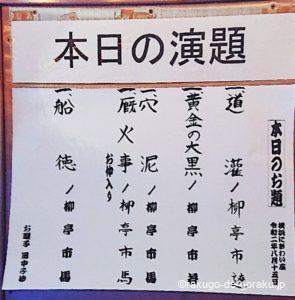 本日の演題
本日のお題
横浜にぎわい座
令和二年八月十五日
一道 灌ノ柳亭市
一黄金の大黒ノ柳亭市
一穴 泥ノ柳亭市馬
一厩火事ノ柳亭市馬
お仲入り
一船 徳ノ柳亭市馬
お囃子 田中ふゆ
©rakugo-demoraku.jp